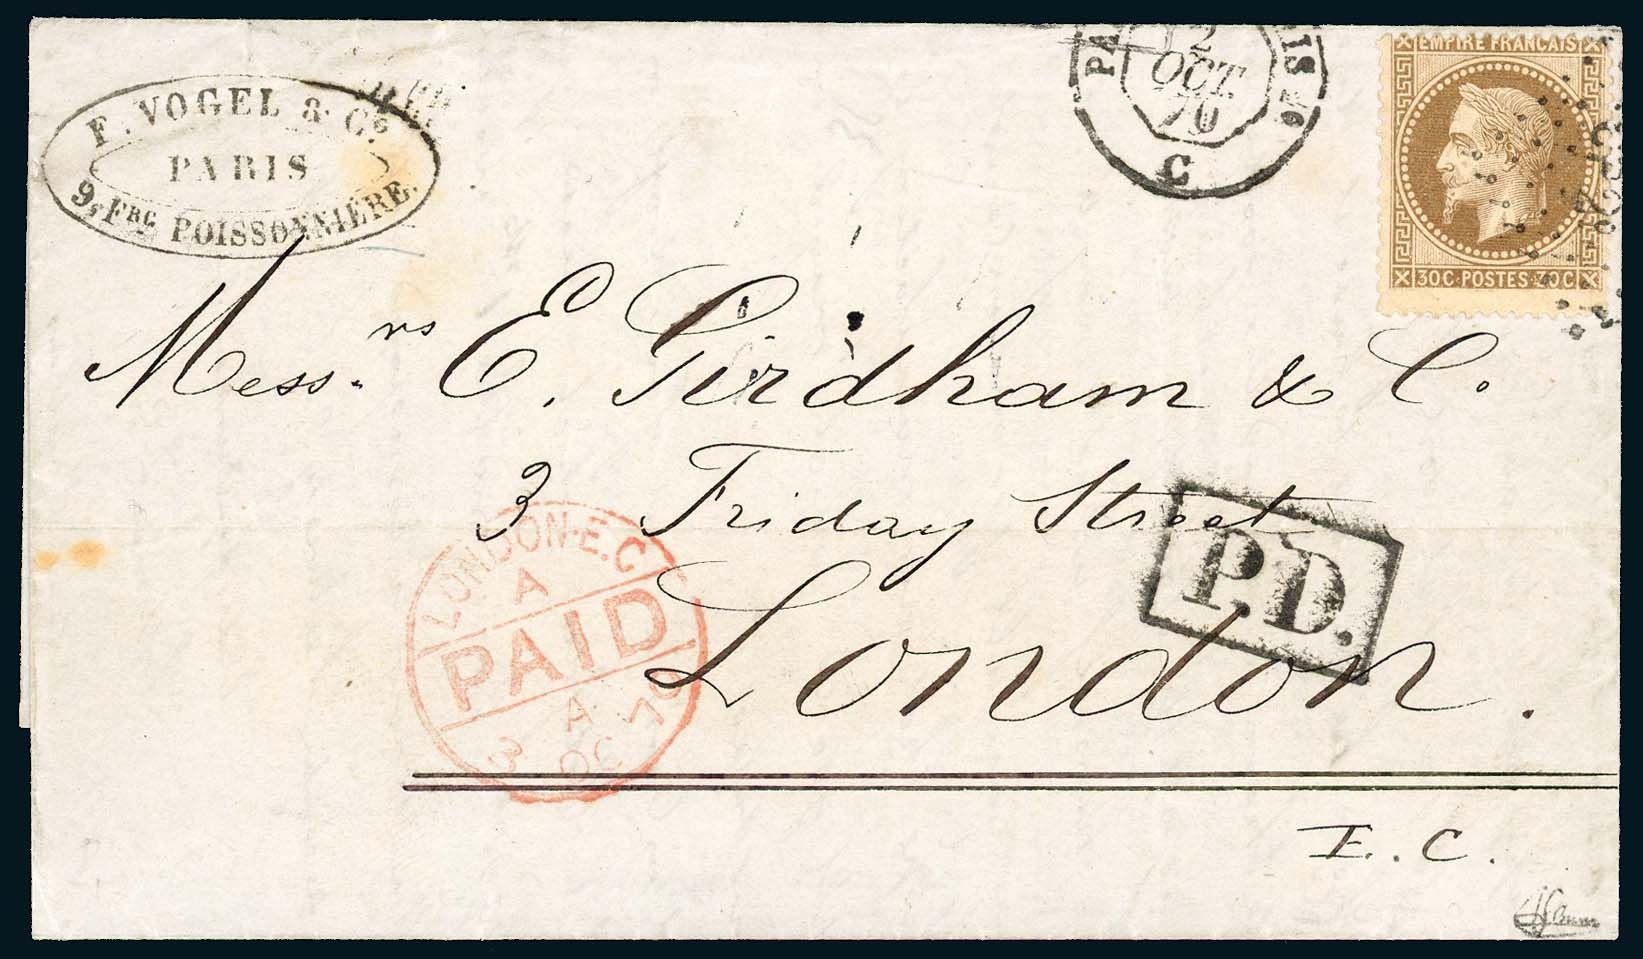 F. VOGEL & Co.
PARIS
9, FBG POISSONNIÈRE.
PA
12
OCT.
70
C
EMPIRE FRANÇAIS
30C·POSTES·30C
Messrs E. Girdham & Co.
3 Friday Street
London.
E.C.
P.D.
LONDON·E.C
A
PAID
A
3 OC 70